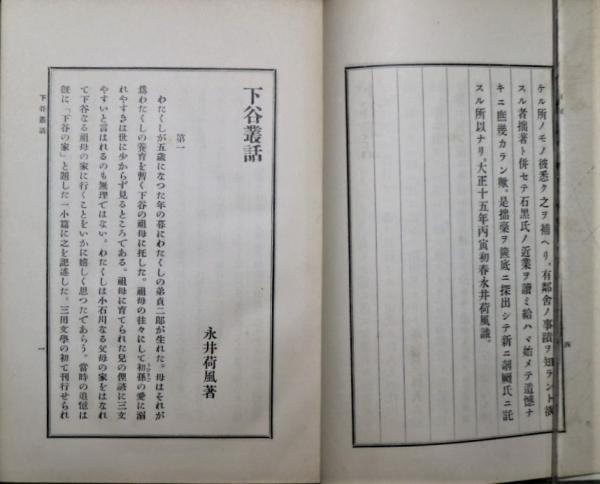 ケル所ノモノ彼悉ク之ヲ補ヘリ。有鄰舍ノ事蹟ヲ知ラント欲
スル者拙著ト併セテ石黑氏ノ近業ヲ讀ミ給ハヾ始メテ遺憾ナ
キニ庶幾カラン歟。是拙稾ヲ篋底ニ探出シテ新ニ剞劂氏ニ託
スル所以ナリ。大正十五年丙寅初春永井荷風識。
四
下谷叢話
永井荷風著
第一
わたくしが五歲になつた年の暮にわたくしの弟貞二郞が生れた。母はそれが
爲わたくしの養育を暫く下谷の祖母に托した。祖母の往々にして初孫の愛に溺
れやすきは世に少からず見るところである。祖母に育てられた兒の俚諺に三文
やすいと言はれるのも無理ではない。わたくしは小石川なる父母の家をはなれ
て下谷なる祖母の家に行くことをいかに嬉しく思つたであらう。當時の追憶は
旣に「下谷の家」と題した一小篇に之を記述した。三田文學の初て刊行せられ
下谷叢話
一